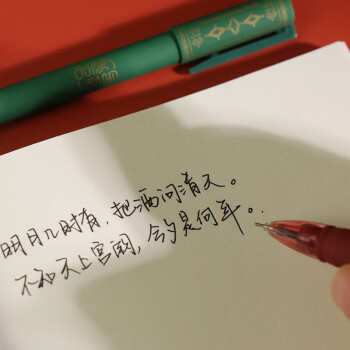 明月几时有，把酒问清天。
不知天上宫阙，今夕是何年。